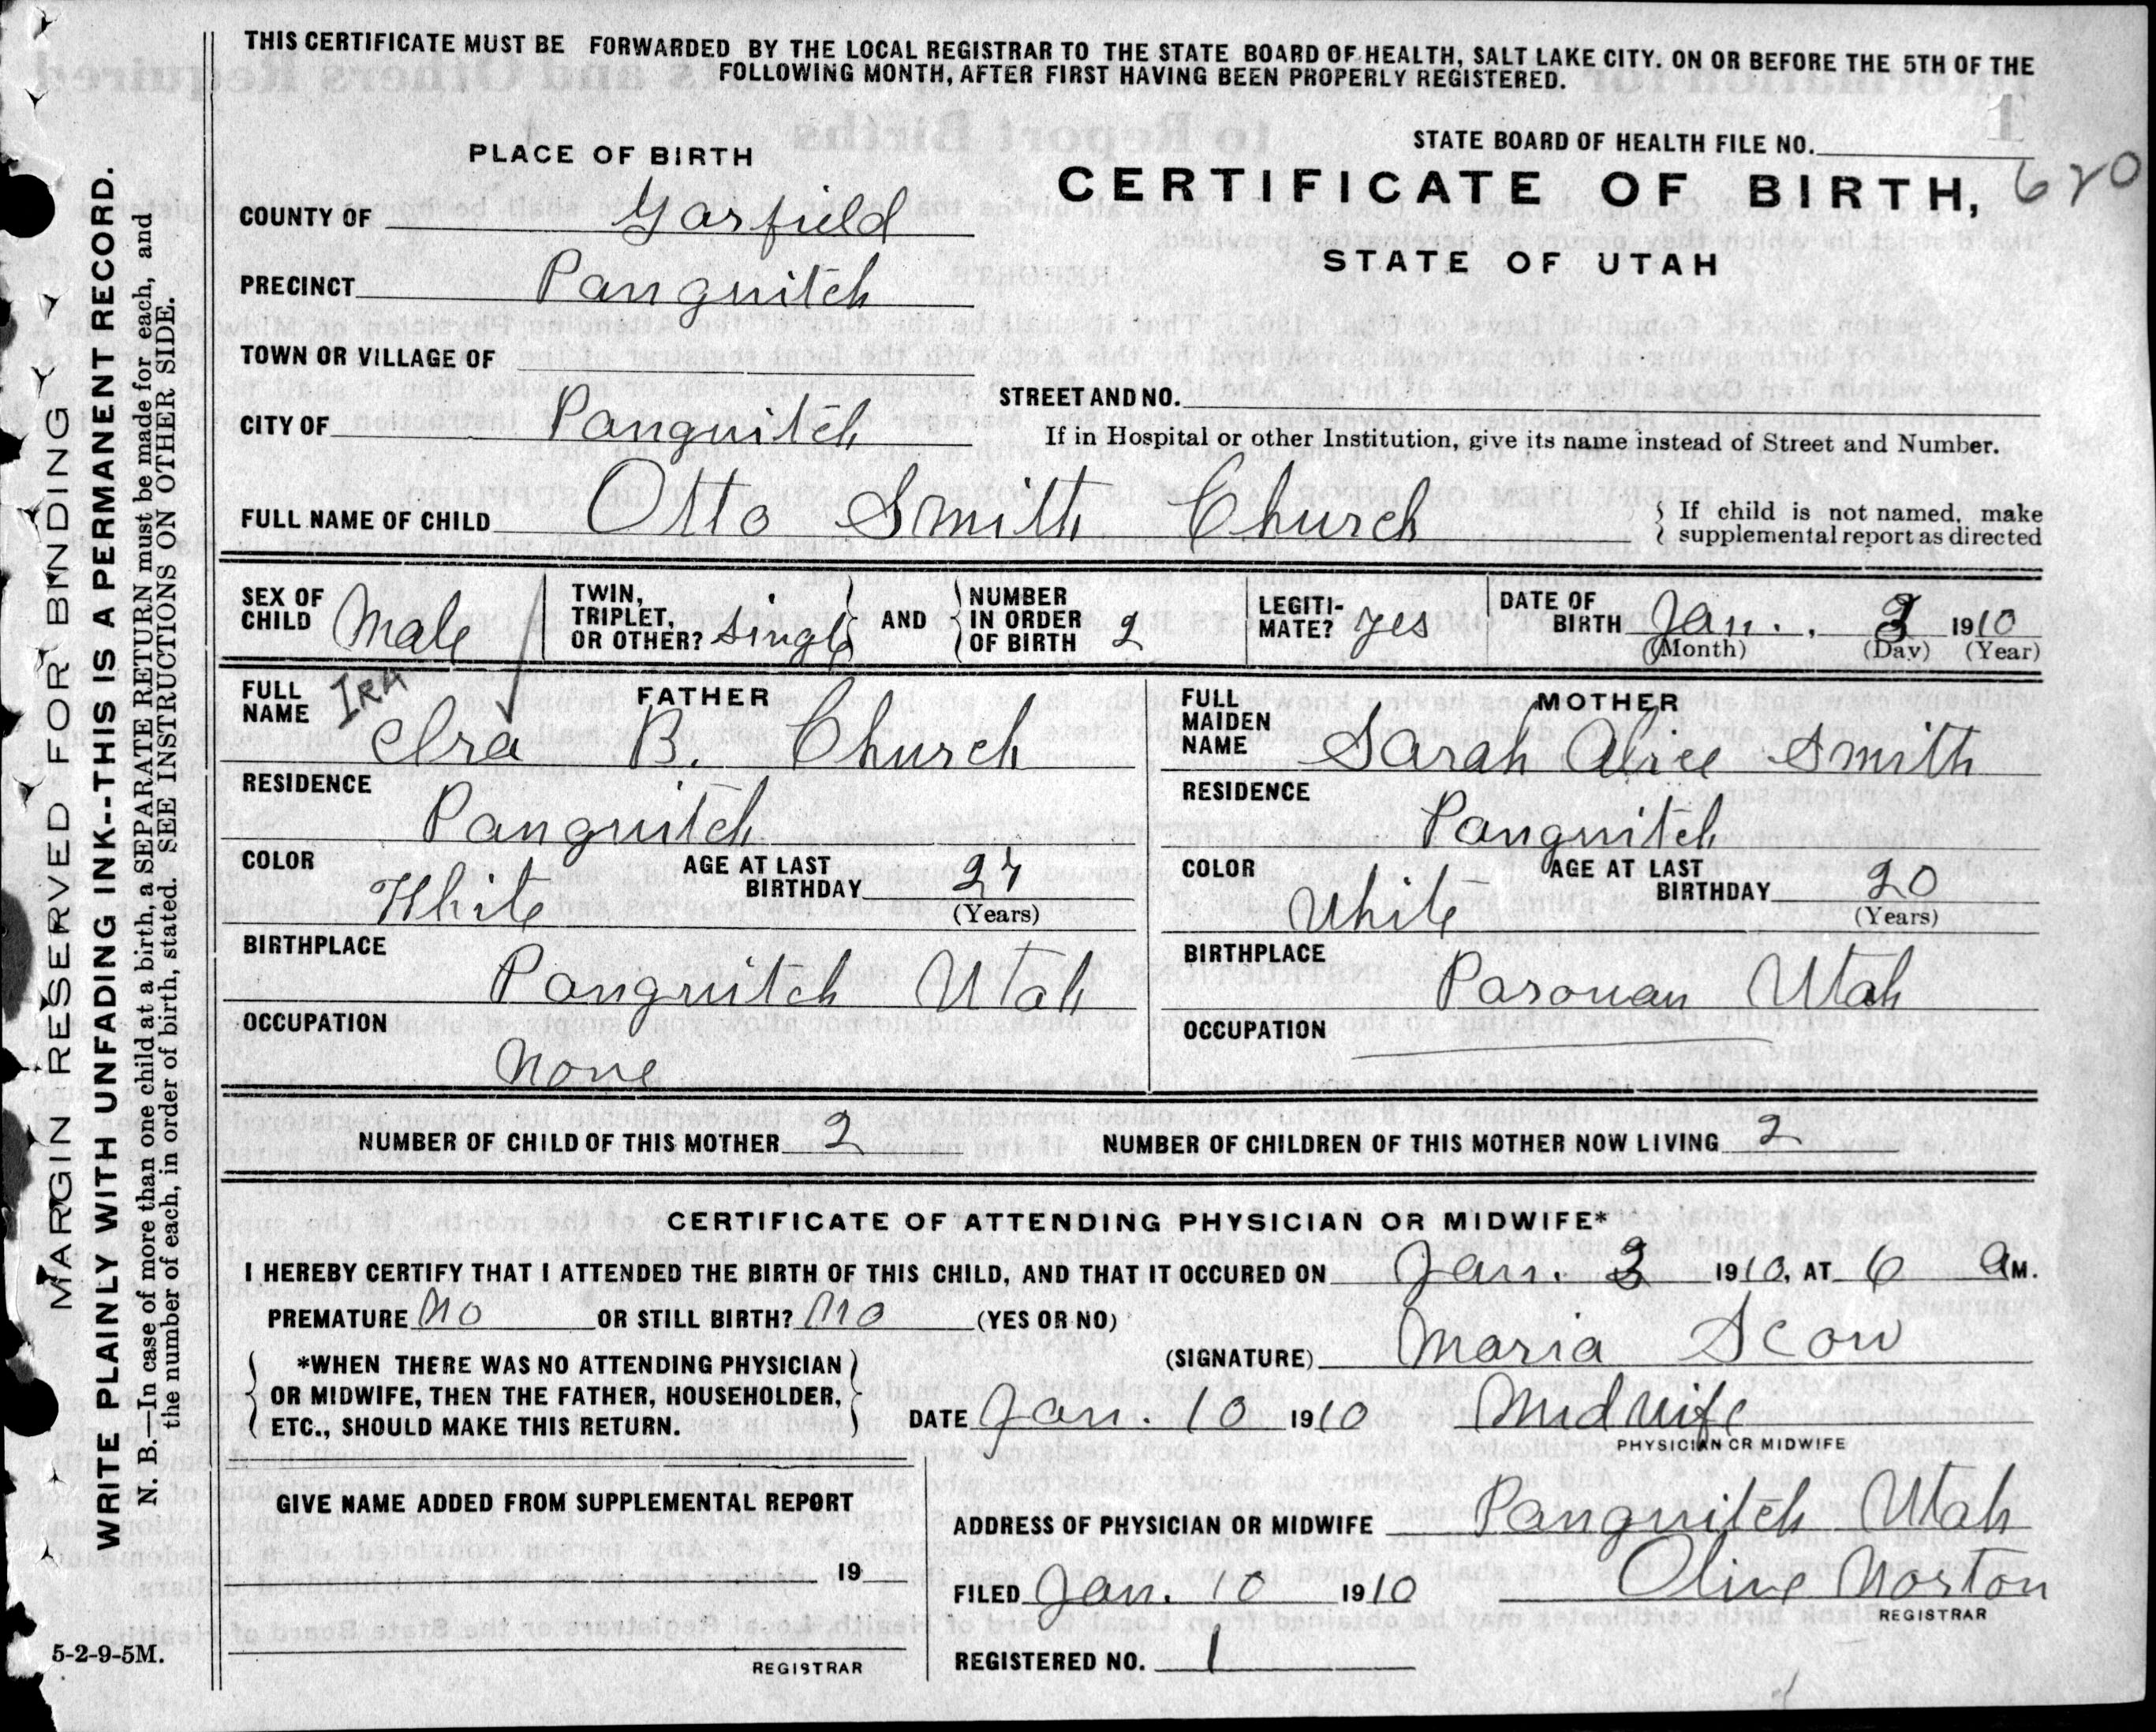 THIS CERTIFICATE MUST BE FORWARDED BY THE LOCAL REGISTRAR TO THE STATE BOARD OF HEALTH, SALT LAKE CITY. ON OR BEFORE THE 5TH OF THE
FOLLOWING MONTH, AFTER FIRST HAVING BEEN PROPERLY REGISTERED.
1
STATE BOARD OF HEALTH FILE NO.
PLACE OF BIRTH
CERTIFICATE OF BIRTH,
STATE OF UTAH
COUNTY OF Garfield
PRECINCT Panguitch
TOWN OR VILLAGE OF
STREET AND NO.
CITY OF Panguitch
If in Hospital or other Institution, give its name instead of Street and Number.
FULL NAME OF CHILD Otto Smith Church
If child is not named, make
supplemental report as directed
SEX OF
CHILD Male
TWIN,
TRIPLET,
OR OTHER? Single
AND
NUMBER
IN ORDER
OF BIRTH 2
LEGITI-
MATE? yes
DATE OF
BIRTH Jan. 1910
(Month) (Day) (Year)
FATHER
FULL
NAME IRA
Ira B. Church
RESIDENCE
Panguitch
COLOR
White
AGE AT LAST
BIRTHDAY
(Years)
BIRTHPLACE
Panguitch Utah
OCCUPATION
None
MOTHER
FULL
MAIDEN
NAME Sarah Alice Smith
RESIDENCE
Panguitch
COLOR
White
AGE AT LAST
BIRTHDAY 20
(Years)
BIRTHPLACE
Parowan Utah
OCCUPATION
NUMBER OF CHILD OF THIS MOTHER 2
NUMBER OF CHILDREN OF THIS MOTHER NOW LIVING 2
CERTIFICATE OF ATTENDING PHYSICIAN OR MIDWIFE*
I HEREBY CERTIFY THAT I ATTENDED THE BIRTH OF THIS CHILD, AND THAT IT OCCURED ON Jan. 1910, AT 6 a M.
PREMATURE No OR STILL BIRTH? No (YES OR NO)
*WHEN THERE WAS NO ATTENDING PHYSICIAN
OR MIDWIFE, THEN THE FATHER, HOUSEHOLDER,
ETC., SHOULD MAKE THIS RETURN.
(SIGNATURE) Maria Scow
DATE Jan. 10 1910 Midwife
PHYSICIAN OR MIDWIFE
GIVE NAME ADDED FROM SUPPLEMENTAL REPORT
19
REGISTRAR
ADDRESS OF PHYSICIAN OR MIDWIFE Panguitch Utah
FILED Jan. 10 1910 Olive Norton
REGISTRAR
REGISTERED NO. 1
MARGIN RESERVED FOR BINDING
WRITE PLAINLY WITH UNFADING INK--THIS IS A PERMANENT RECORD.
N. B.—In case of more than one child at a birth, a SEPARATE RETURN must be made for each, and
the number of each, in order of birth, stated. SEE INSTRUCTIONS ON OTHER SIDE.
5-2-9-5M.